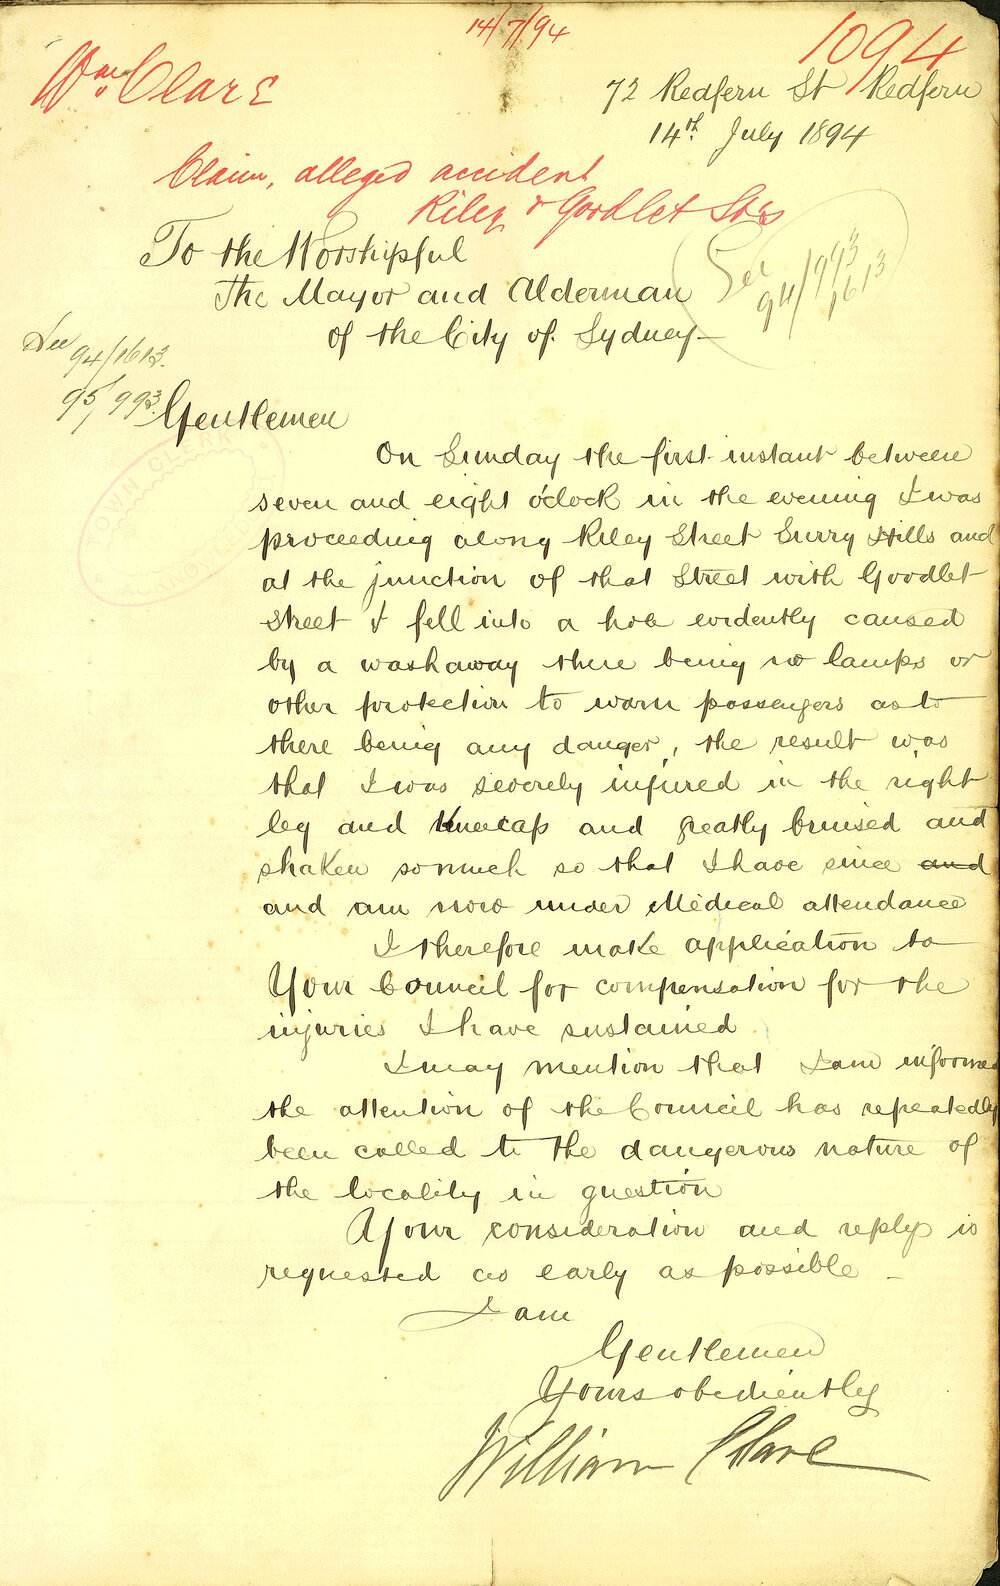 14/7/94
1094
Wm Clare
72 Redfern St Redfern
14th July 1894
Claim, alleged accident
Riley & Goodlet Sts
To the Worshipful
The Mayor and Alderman
of the City of Sydney
See 94/993
1613
See 94/1613.
95/993.
Gentlemen
TOWN CLERK
On Sunday the first instant between
seven and eight o'clock in the evening I was
proceeding along Riley Street Surry Hills and
at the junction of that Street with Goodlet
Street I fell into a hole evidently caused
by a washaway there being no lamps or
other protection to warn passengers as to
there being any danger, the result was
that I was severely injured in the right
leg and kneecap and greatly bruised and
shaken so much so that I have since and
and am now under Medical attendance
I therefore make application to
Your Council for compensation for the
injuries I have sustained
I may mention that I am informed
the attention of the Council has repeatedly
been called to the dangerous nature of
the locality in question
Your consideration and reply is
requested as early as possible –
I am
Gentlemen
Yours obediently
William Clare